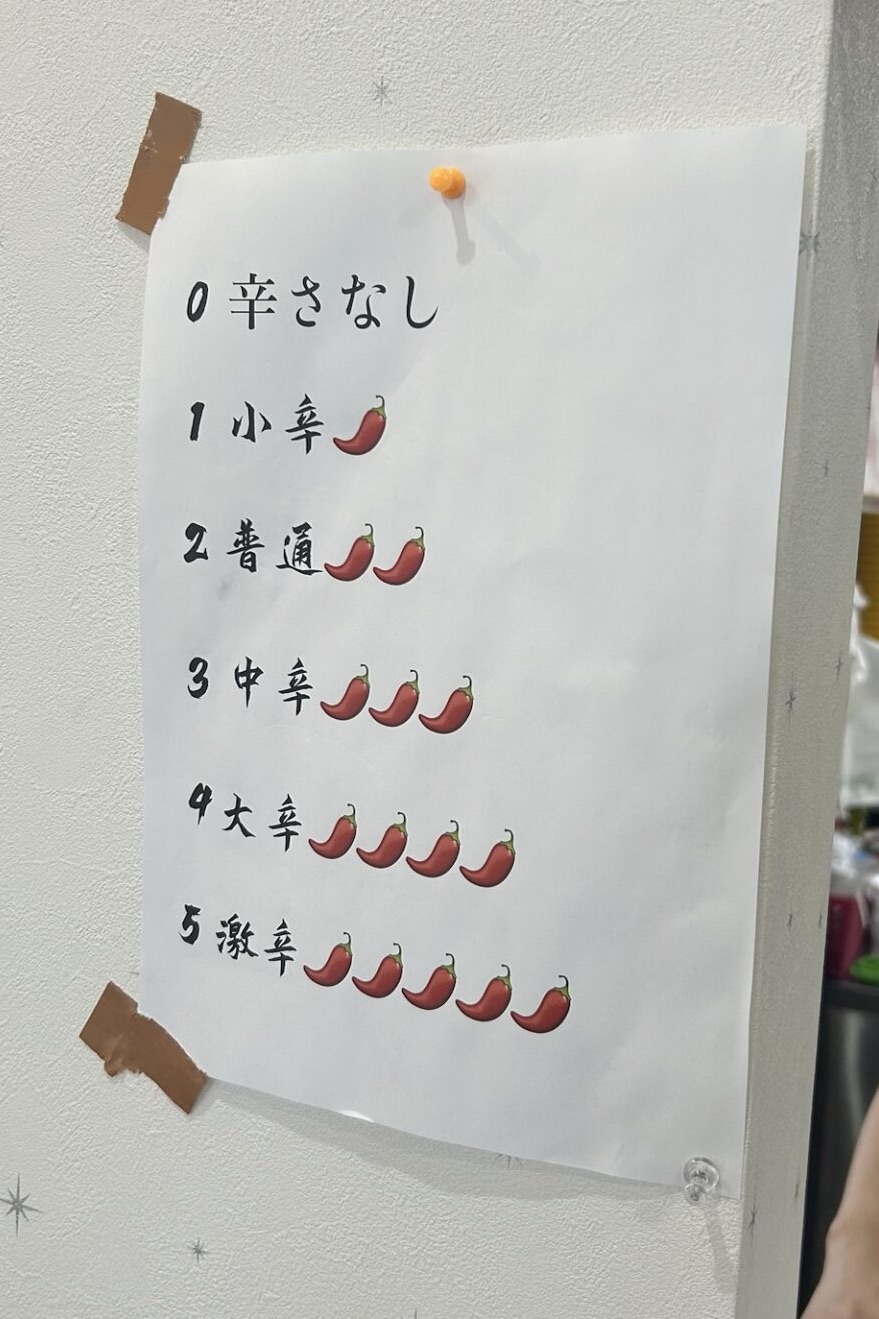 0 辛さなし
1 小辛🌶️
2 普通🌶️🌶️
3 中辛🌶️🌶️🌶️
4 大辛🌶️🌶️🌶️🌶️
5 激辛🌶️🌶️🌶️🌶️🌶️